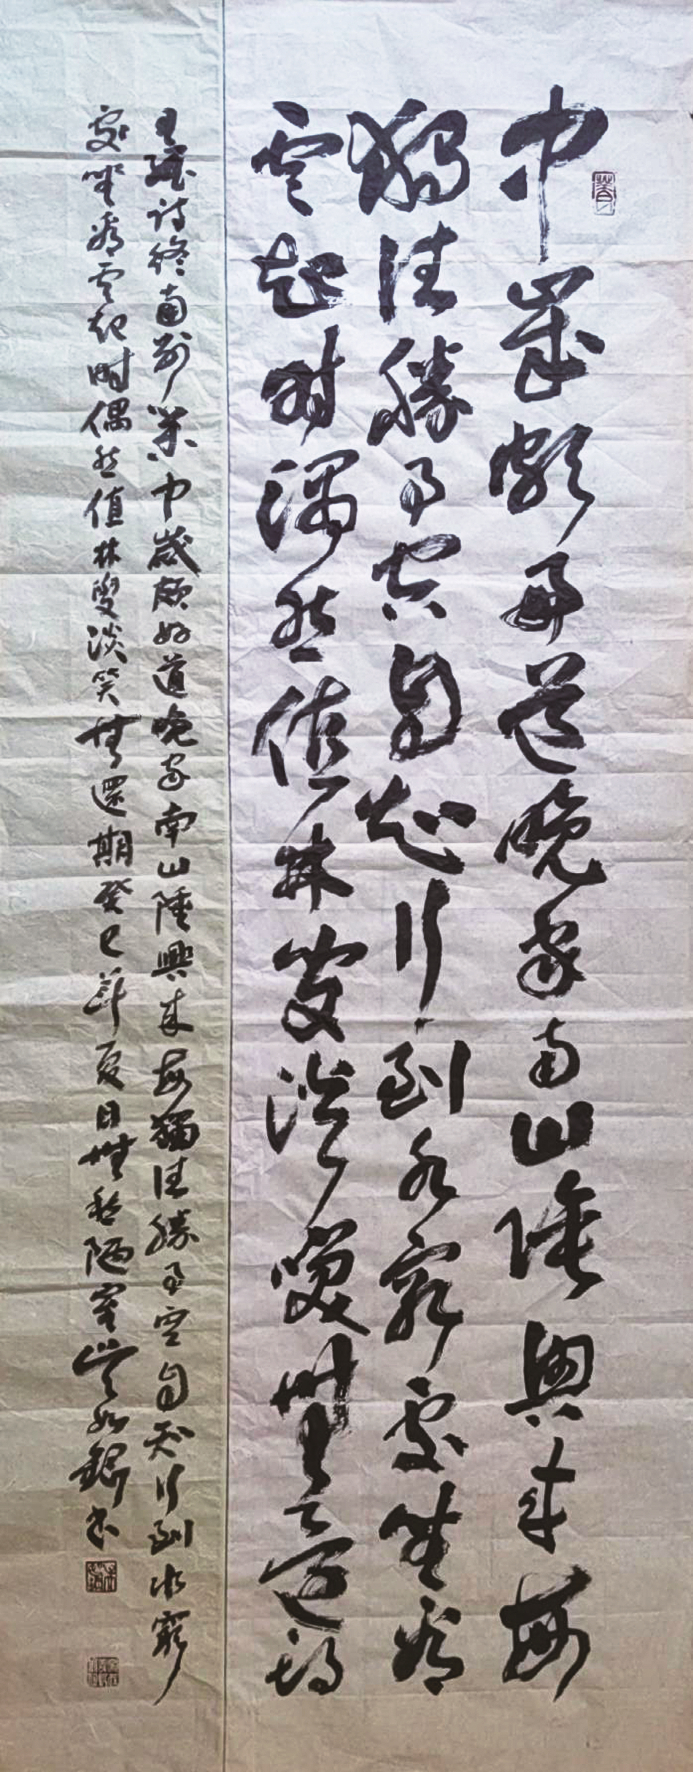 中歲頗好道晚家南山陲興來每
獨往勝事空自知行到水窮處坐看
雲起時偶然值林叟談笑無還期
王維詩終南別業中歲頗好道晚家南山陲興來每獨往勝事空自知行到水窮
處坐看雲起時偶然值林叟談笑無還期癸巳年夏日無愁陋室